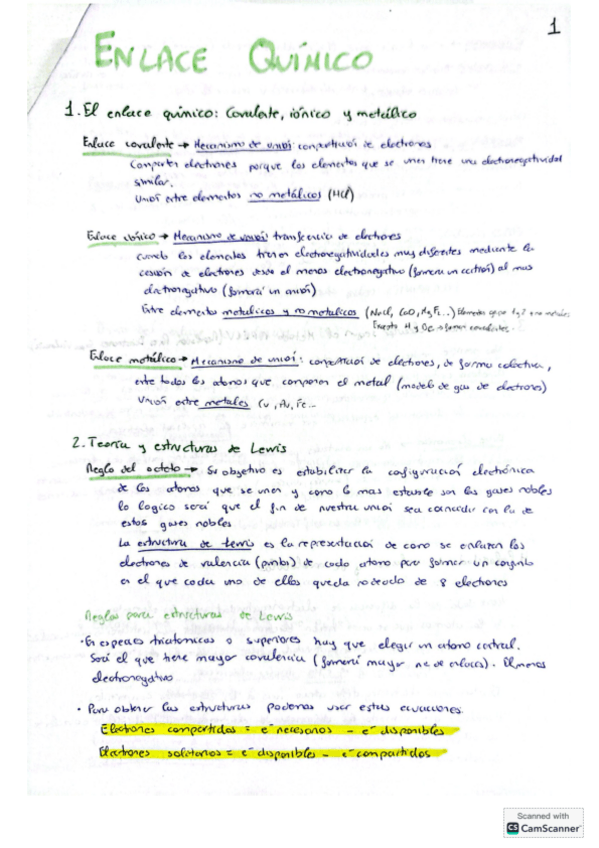 1
ENLACE QUÍMICO
1. El enlace químico: Covalente, iónico y metálico
Enlace covalente → Mecanismo de unión: compartición de electrones
Comparten electrones porque los elementos que se unen tiene una electronegatividad
similar.
Unión entre elementos no metálicos (HCl)
Enlace iónico → Mecanismo de unión: transferencia de electrones
cuando los elementos tienen electronegatividades muy diferentes mediante la
cesión de electrones desde el menos electronegativo (formará un catión) al mas
electronegativo (formará un anión)
Entre elementos metalicos y no metalicos (NaCl, CaO, MgF₂...) Elementos 1 y 2 no metales
Excepto H y Be → forman covalentes.
Enlace metálico → Mecanismo de unión: compartición de electrones, de forma colectiva,
entre todos los atomos que componen el metal (modelo de gas de electrones)
Unión entre metales Cu, Au, Fe...
2. Teoría y estructuras de Lewis
Regla del octeto → Su objetivo es estabilizar la configuración electrónica
de los atomos que se unen y como lo mas estable son los gases nobles
lo logico será que el fin de nuestra unión sea coincidir con la de
estos gases nobles
La estructura de Lewis es la representación de como se enlazan los
electrones de valencia (puntos) de cada atomo para formar un conjunto
en el que cada uno de ellos queda rodeado de 8 electrones
Reglas para estructuras de Lewis
· En especies triatomicas o superiores hay que elegir un atomo central.
Será el que tiene mayor covalencia (formará mayor nº de enlaces). El menos
electronegativo
· Para obtener las estructuras podemos usar estas ecuaciones.
Electrones compartidos = e⁻ necesarios - e⁻ disponibles
Electrones solitarios = e⁻ disponibles - e⁻ compartidos
Scanned with
CS CamScanner